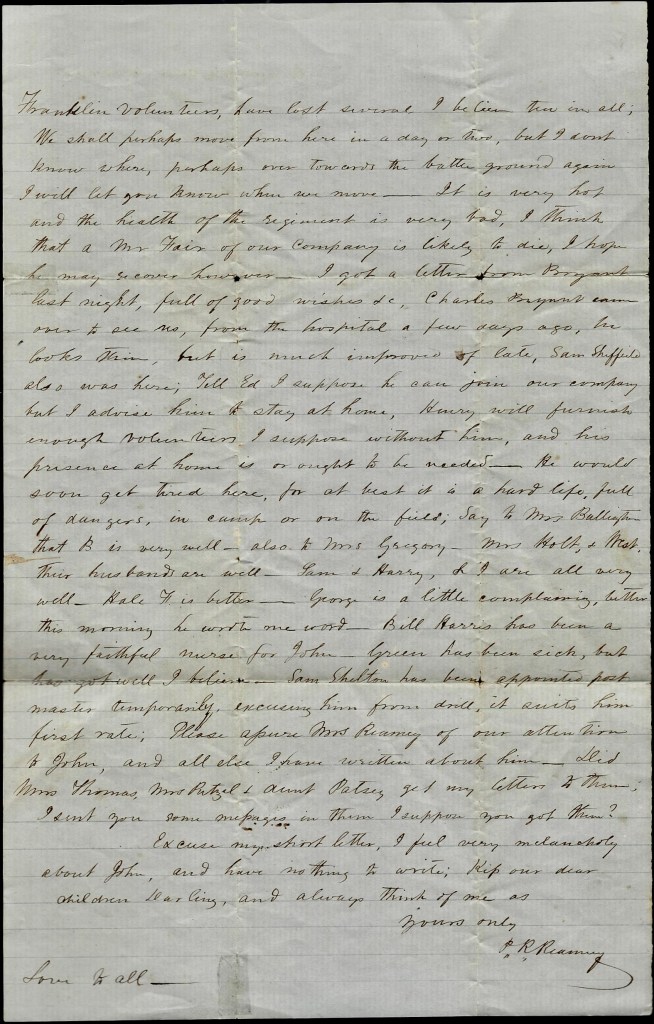 Franklin Volunteers, have lost several I believe ten in all;
We shall perhaps move from here in a day or two, but I dont
know where, perhaps over towards the battle ground again
I will let you know when we move — It is very hot
and the health of the regiment is very bad, I think
that a Mr Fair of our company is likely to die, I hope
he may recover however — I got a letter from Bryant
last night, full of good wishes &c, Charles Bryant came
over to see us, from the hospital a few days ago, he
looks thin, but is much improved of late, Sam Sheffield
also was here; Tell Ed I suppose he can join our company
but I advise him to stay at home, Henry will furnish
enough volunteers I suppose without him, and his
presence at home is or ought to be needed — He would
soon get tired here, for at best it is a hard life, full
of dangers, in camp or on the field; Say to Mrs
that B is very well — also to Mrs Gregory — Mrs Holt, & West.
their husbands are well — Sam & Harry, & I are all very
well — Hale is better — George is a little complaining, better
this morning he wrote me word — Bill Harris has been a
very faithful nurse for John — Green has been sick, but
has got well I believe — Sam Shelton has been appointed post
master temporarily, excusing him from drill, it suits him
first rate; Please assure Mrs Reamey of our attention
to John, and all else I have written about him — Did
Mrs Thomas, Mrs & Aunt Patsey get my letters to them;
I sent you some messages in them I suppose you got them?
Excuse my short letter, I feel very melancholy
about John, and have nothing to write; Kiss our dear
children Darling, and always think of me as
yours only
P. R. Reamey
Love to all —